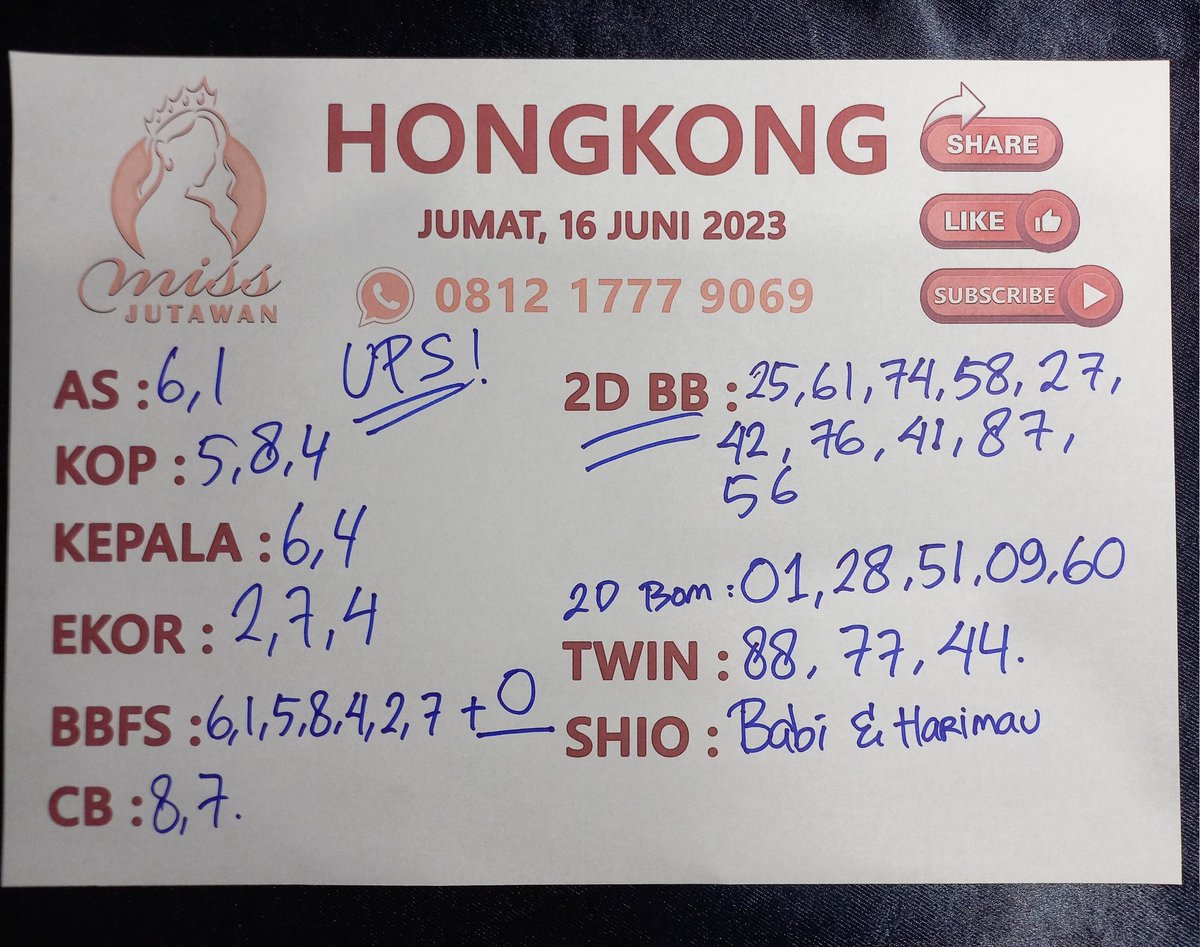 HONGKONG
JUMAT, 16 JUNI 2023
0812 1777 9069
miss
JUTAWAN
SHARE
LIKE
SUBSCRIBE
UPS!
AS : 6, 1
KOP : 5, 8, 4
KEPALA : 6, 4
EKOR : 2, 7, 4
BBFS : 6, 1, 5, 8, 4, 2, 7 + 0
CB : 8, 7.
2D BB : 25, 61, 74, 58, 27,
42, 76, 41, 87,
56
2D Bom : 01, 28, 51, 09, 60
TWIN : 88, 77, 44.
SHIO : Babi & Harimau